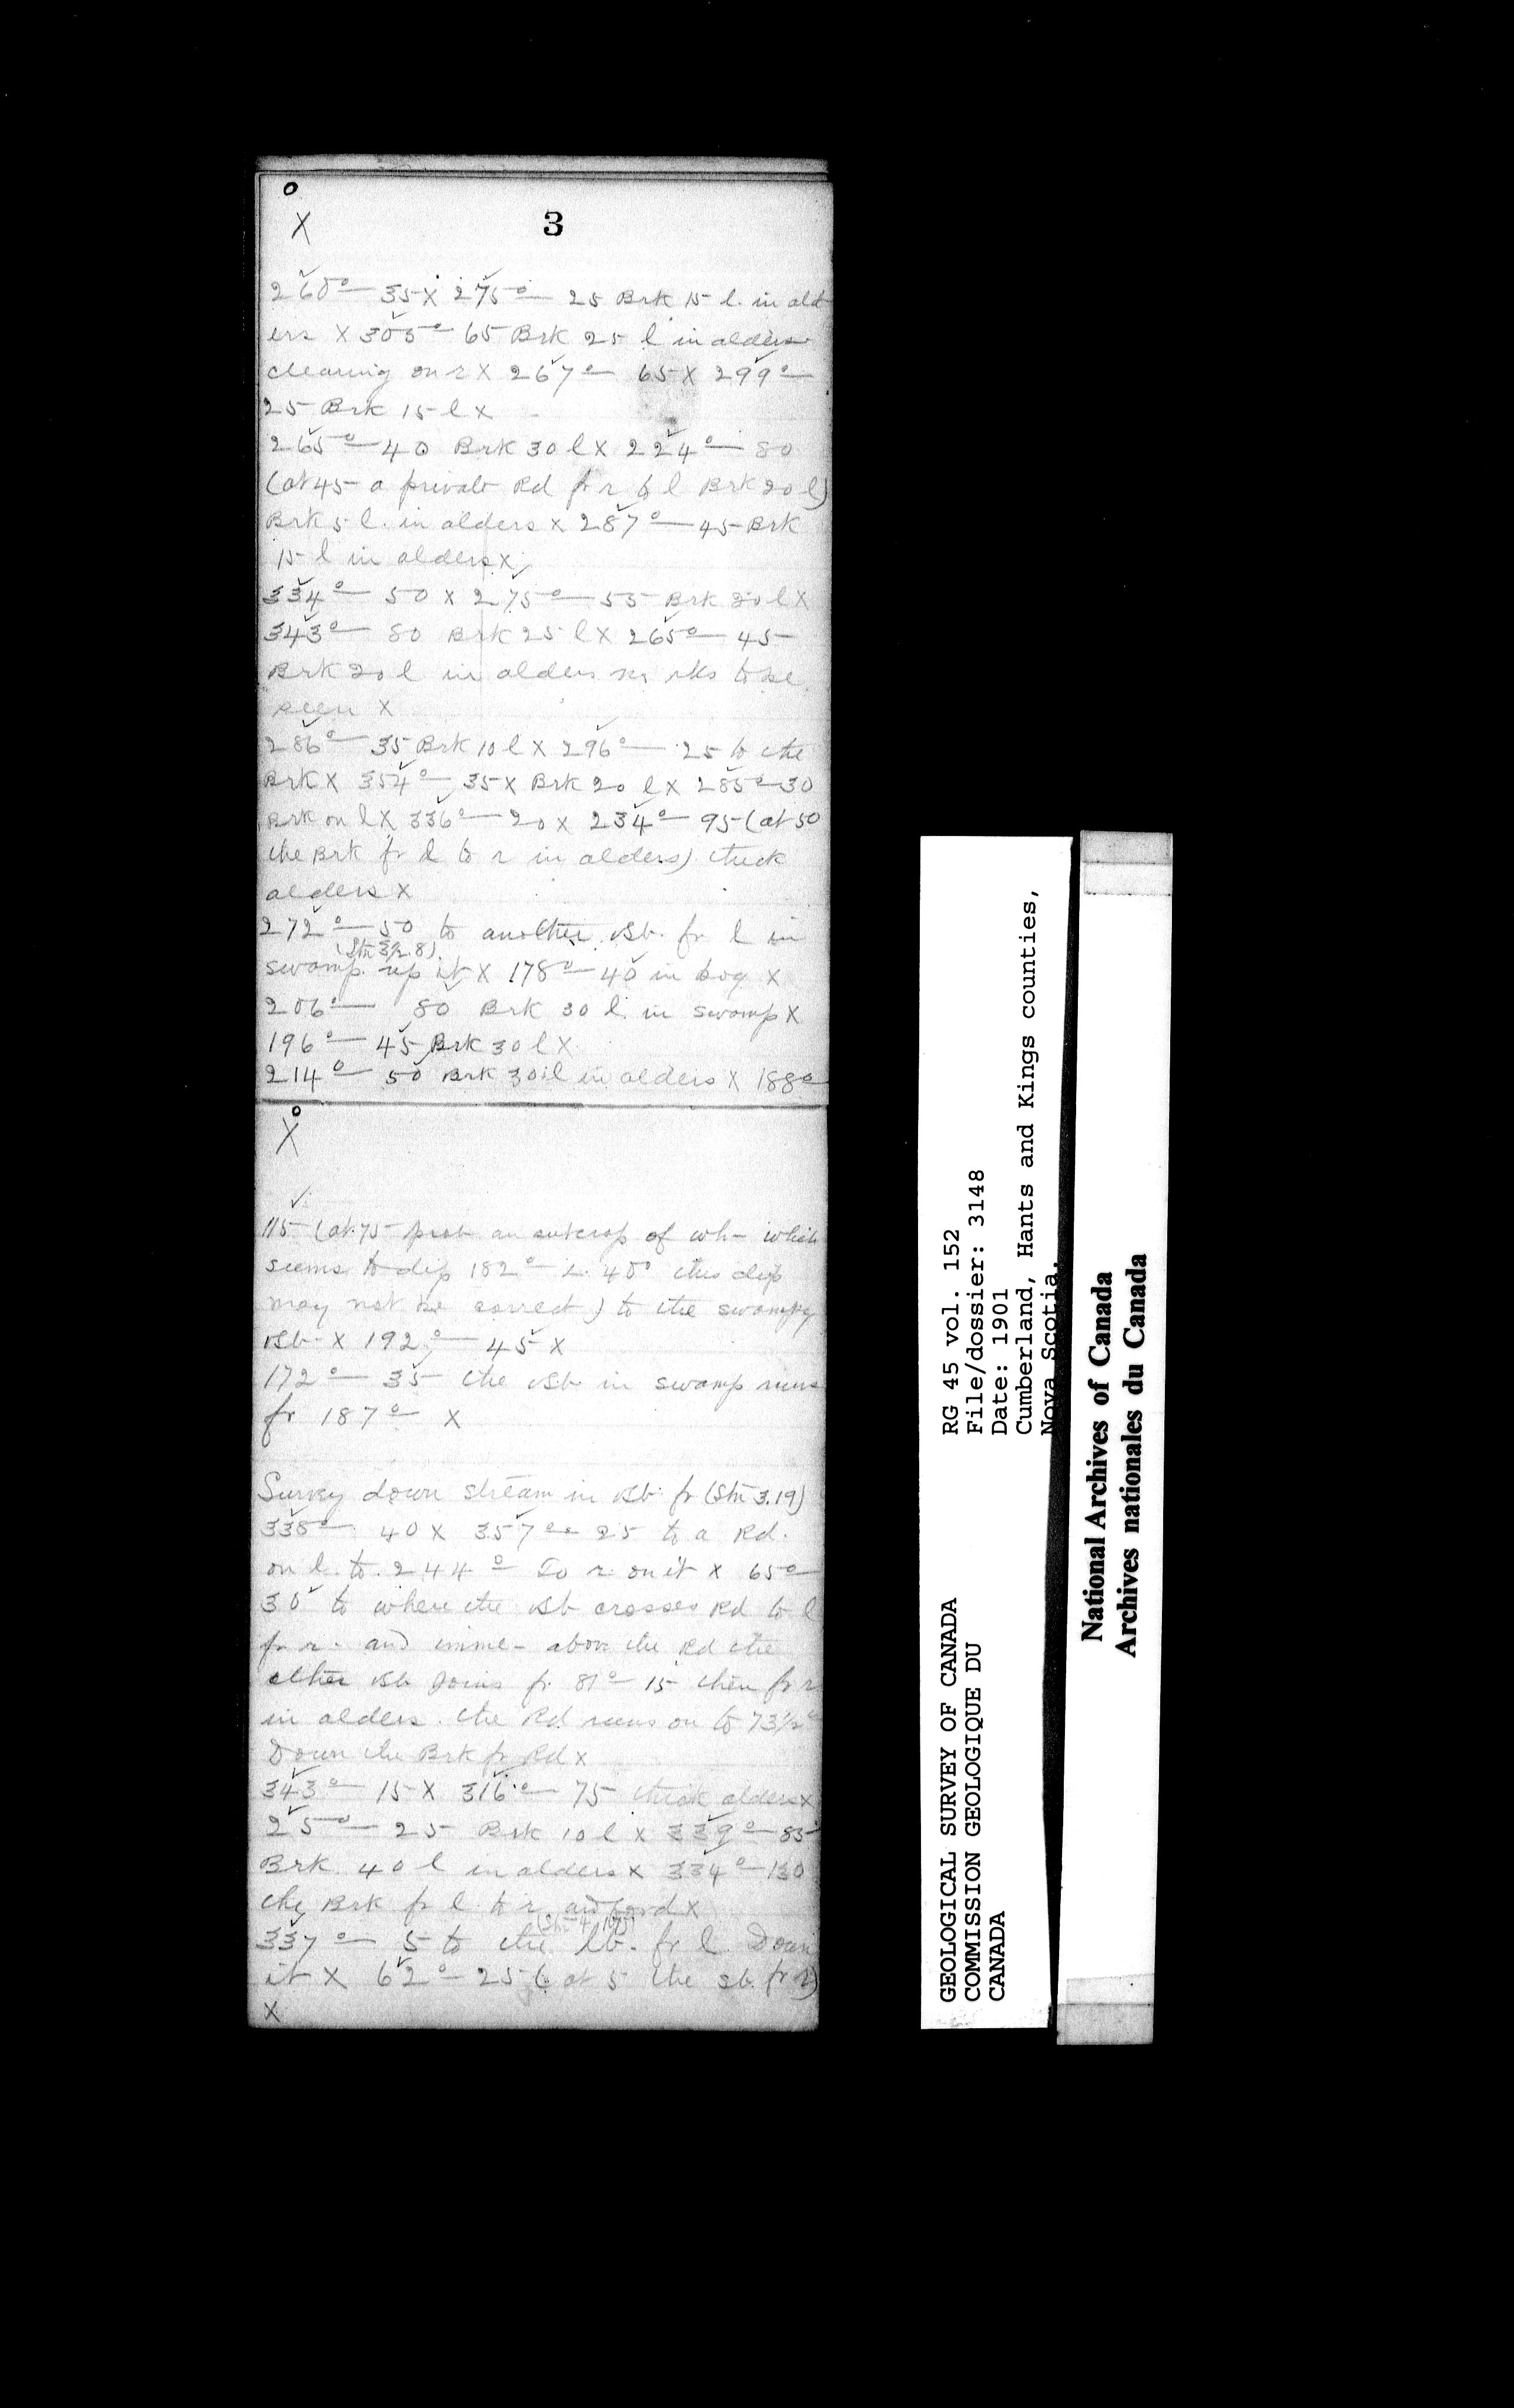 X
3
260° — 35 X 275° — 25 Brk 15 l. in ald
ers X 305° 65 Brk 25 l in alders
clearing on r X 267° — 65 X 299° —
25 Brk 15 l X
265° — 40 Brk 30 l X 224° — 80
(at 45 a private Rd fr r to l Brk 20 l)
Brk 5 l. in alders X 287° — 45 Brk
15 l in alders X
334° — 50 X 275° — 55 Brk 30 l X
343° — 80 Brk 25 l X 265° — 45
Brk 20 l in alders no rks to be
seen X
286° — 35 Brk 10 l X 296° — 25 to the
Brk X 354° — 35 X Brk 20 l X 285° — 30
Brk on l X 336° — 20 X 234° — 95 (at 50
the Brk fr l to r in alders) thick
alders X
272° — 50 to another sb. fr l in
swamp. up it X 178° — 40 in bog X
206° — 80 Brk 30 l. in swamp X
196° — 45 Brk 30 l X
214° — 50 Brk 30 l in alders X 188°
X
115 (at 75 prob an outcrop of wh — which
seems to dip 182° — 40° this dip
may not be correct) to the swampy
sb. X 192° — 45 X
172° — 35 the sb. in swamp runs
fr 187° X
Survey down stream in sb. fr (Stn 3.19)
338° — 40 X 357° — 25 to a Rd.
on l. to 244° — To r. on it X 65° —
30 to where the sb crosses Rd to l
fr r. and imme- above the Rd the
other sb joins fr. 81° — 15 then fr r
in alders. the Rd runs on to 73½°
Down the Brk fr Rd X
343° — 15 X 316° — 75 thick alders X
25° — 25 Brk 10 l X 339° — 85
Brk 40 l in alders X 334° — 130
the Brk fr l to r and ford X
337° — 5 to the lb. fr l. Down
it X 62° — 25 (at 5 the sb. fr r)
X
RG 45 vol. 152
File/dossier: 3148
Date: 1901
Cumberland, Hants and Kings counties,
Nova Scotia.
GEOLOGICAL SURVEY OF CANADA
COMMISSION GEOLOGIQUE DU
CANADA
National Archives of Canada
Archives nationales du Canada